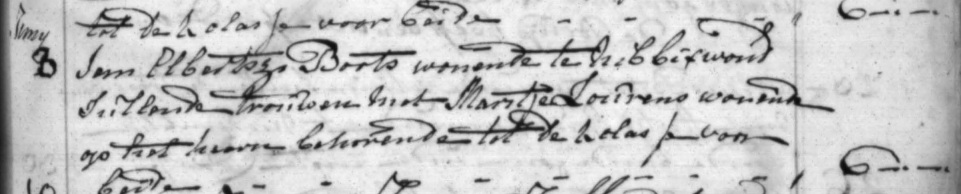 tot de klasse voor beide 6 – –
Jan Elbertsz Boots wonende te hibbixwoud
Sullende trouwen met Maritje Lourens wonende
op het hoorn behorende tot de klasse voor
beide 6 – –